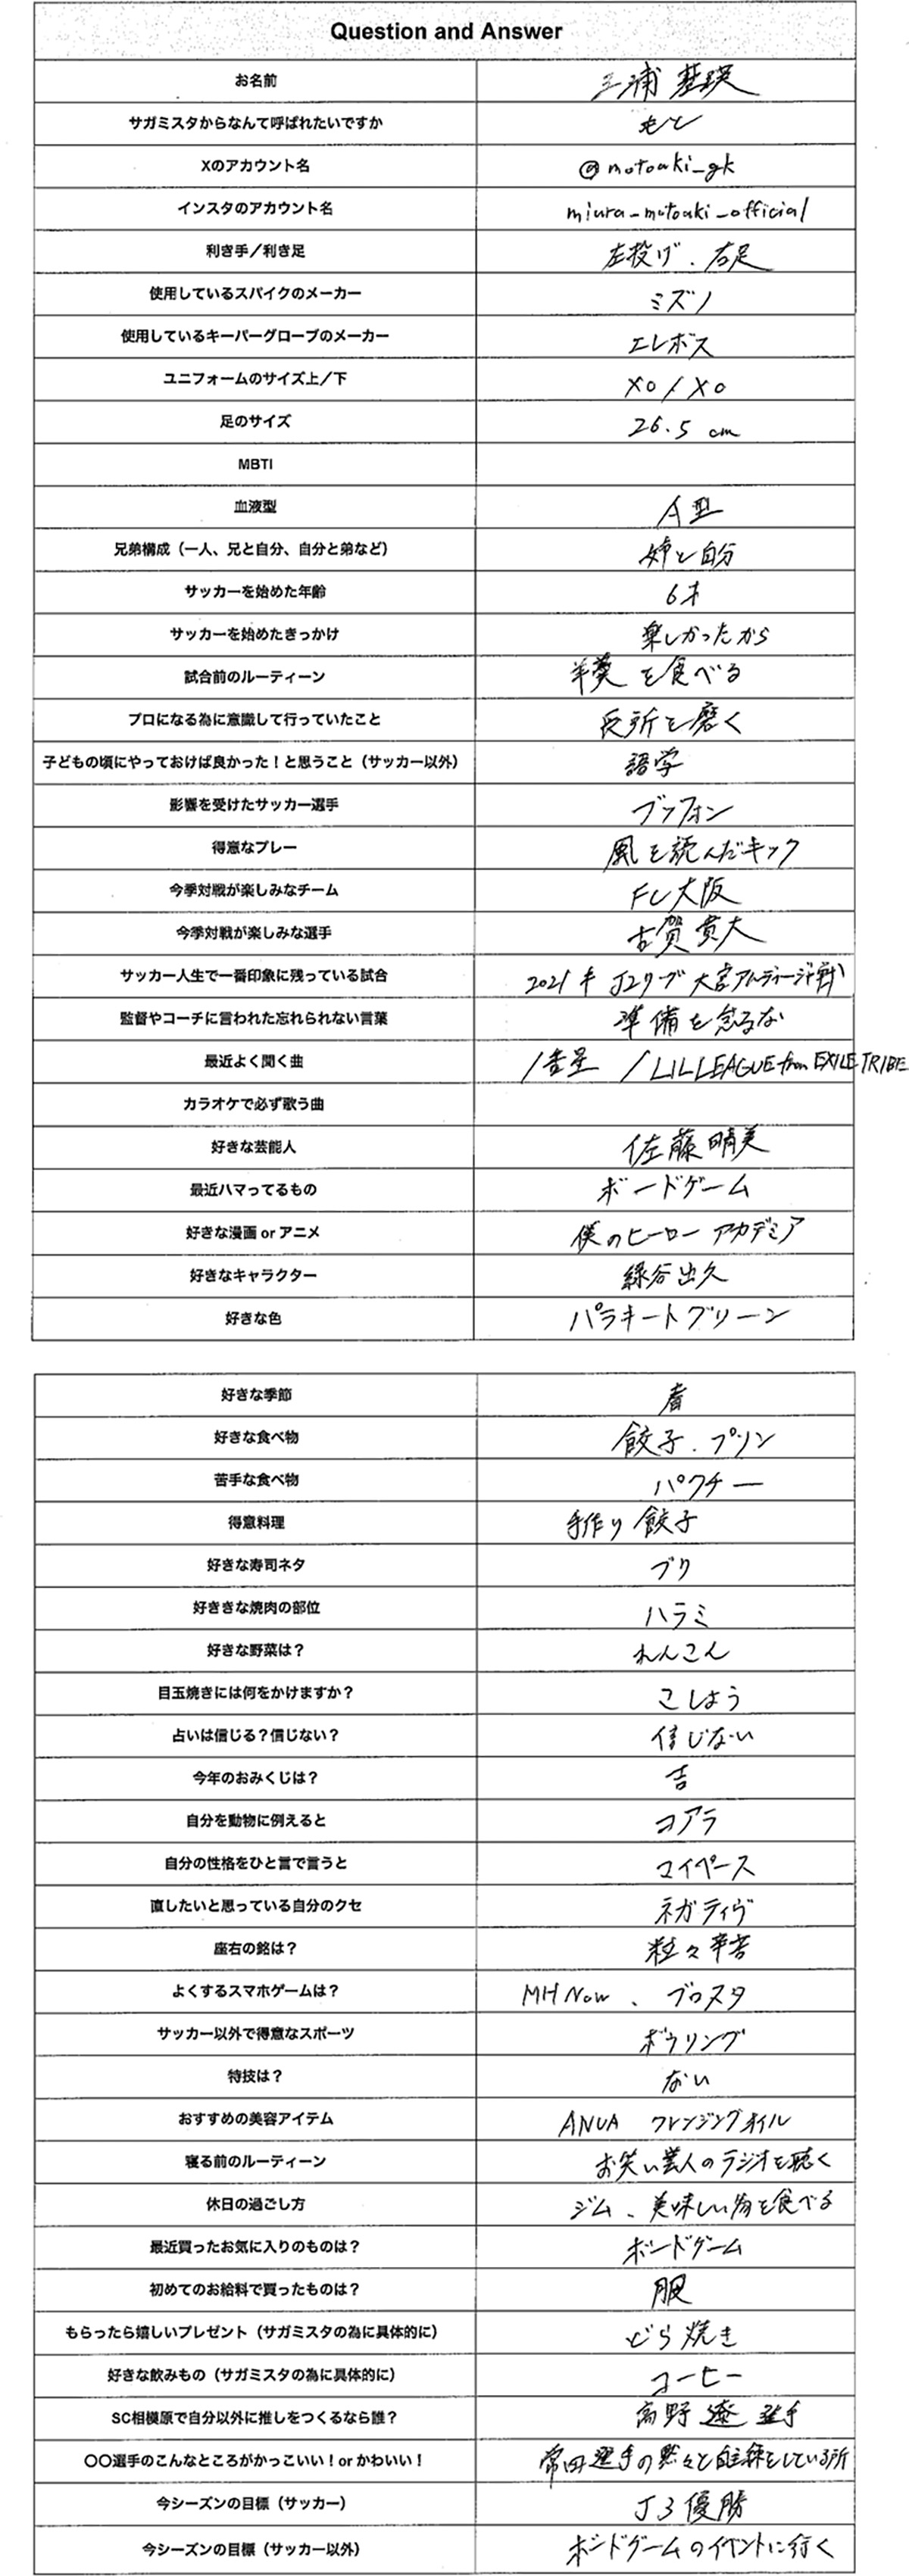 Question and Answer
お名前 三浦 基瑛
サガミスタからなんて呼ばれたいですか もと
Xのアカウント名 @motoaki_gk
インスタのアカウント名 miura_motoaki_official
利き手／利き足 左投げ．右足
使用しているスパイクのメーカー ミズノ
使用しているキーパーグローブのメーカー エレボス
ユニフォームのサイズ上／下 XO / XO
足のサイズ 26.5 cm
MBTI
血液型 A型
兄弟構成（一人、兄と自分、自分と弟など） 姉と自分
サッカーを始めた年齢 6才
サッカーを始めたきっかけ 楽しかったから
試合前のルーティーン 羊羹を食べる
プロになる為に意識して行っていたこと 長所を磨く
子どもの頃にやっておけば良かった！と思うこと（サッカー以外） 語学
影響を受けたサッカー選手 ブッフォン
得意なプレー 風を読んだキック
今季対戦が楽しみなチーム FC大阪
今季対戦が楽しみな選手 古賀貴大
サッカー人生で一番印象に残っている試合 2021年 J2リーグ 大宮アルディージャ戦
監督やコーチに言われた忘れられない言葉 準備を怠るな
最近よく聞く曲 /番星 / LIL LEAGUE from EXILE TRIBE
カラオケで必ず歌う曲
好きな芸能人 佐藤晴美
最近ハマってるもの ボードゲーム
好きな漫画 or アニメ 僕のヒーローアカデミア
好きなキャラクター 緑谷出久
好きな色 パラキートグリーン
好きな季節 春
好きな食べ物 餃子．プリン
苦手な食べ物 パクチー
得意料理 手作り餃子
好きな寿司ネタ ブリ
好ききな焼肉の部位 ハラミ
好きな野菜は？ れんこん
目玉焼きには何をかけますか？ こしょう
占いは信じる？信じない？ 信じない
今年のおみくじは？ 吉
自分を動物に例えると コアラ
自分の性格をひと言で言うと マイペース
直したいと思っている自分のクセ ネガティヴ
座右の銘は？ 粒々辛苦
よくするスマホゲームは？ MH Now 、ブロスタ
サッカー以外で得意なスポーツ ボウリング
特技は？ ない
おすすめの美容アイテム ANUA クレンジングオイル
寝る前のルーティーン お笑い芸人のラジオを聴く
休日の過ごし方 ジム、美味しい物を食べる
最近買ったお気に入りのものは？ ボードゲーム
初めてのお給料で買ったものは？ 服
もらったら嬉しいプレゼント（サガミスタの為に具体的に） どら焼き
好きな飲みもの（サガミスタの為に具体的に） コーヒー
SC相模原で自分以外に推しをつくるなら誰？ 高野遼選手
〇〇選手のこんなところがかっこいい！or かわいい！ 常田選手の黙々と自主練をしている所
今シーズンの目標（サッカー） J3優勝
今シーズンの目標（サッカー以外） ボードゲームのイベントに行く